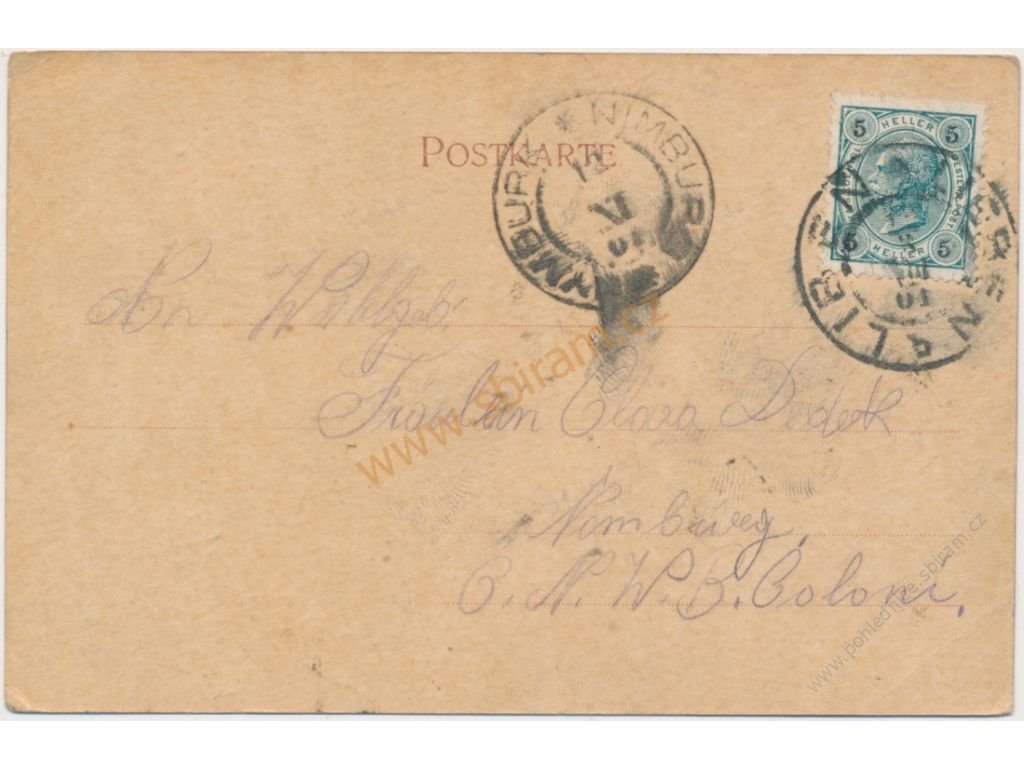 POSTKARTE
NIMBURG NYMBURK
VI
01
5 HELLER 5
5 HELLER 5
LIBEŇ
VIII
01
An Wohlgeb.
Fräulein Clara Dedek
Nimburg,
Ö. N. W. B. Coloni.
www.sbiram.cz
www.pohlednice.sbiram.cz